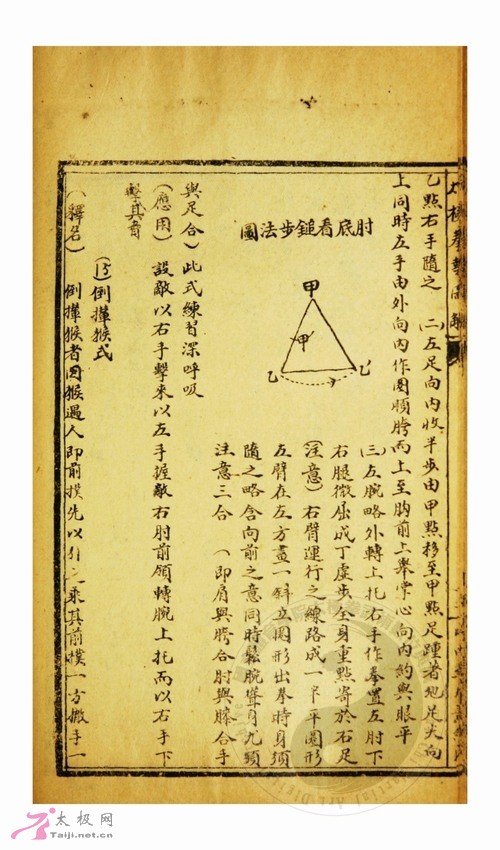 乙點右手隨之 (二)左足向內收半步由甲點移至甲點足踵著地足尖向
上同時左手由外向內作圓順胯而上至胸前上舉掌心向內約與眼平
肘底看鎚步法圖
甲
甲
乙
乙
(三)左腕略外轉上托右手作拳置左肘下
右腿微屈成丁虛步全身重點寄於右足
(注意)右臂運行之線路成一平圓形
左臂在左方畫一斜立圓形出拳時身須
隨之略含向前之意同時鬆腕聳身尤須
注意三合 (即肩與胯合肘與膝合手
與足合) 此式練習深呼吸
(應用) 設敵以右手擊來以左手握敵右肘前領轉腕上托而以右手下
擊其脅
(15)倒攆猴式
(釋名) 倒攆猴者因猴遇人即前撲先以引之乘其前撲一方撤手一
太极网
Taiji.net.cn